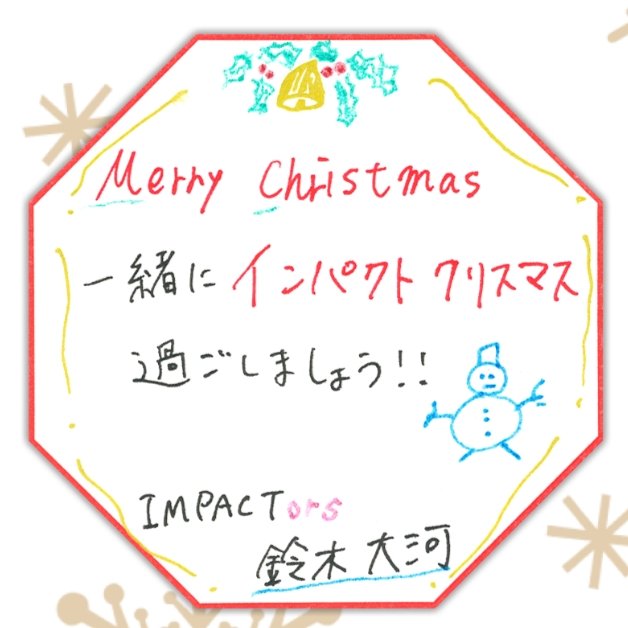 Merry Christmas
一緒に インパクト クリスマス
過ごしましょう!!
IMPACTors
鈴木大河